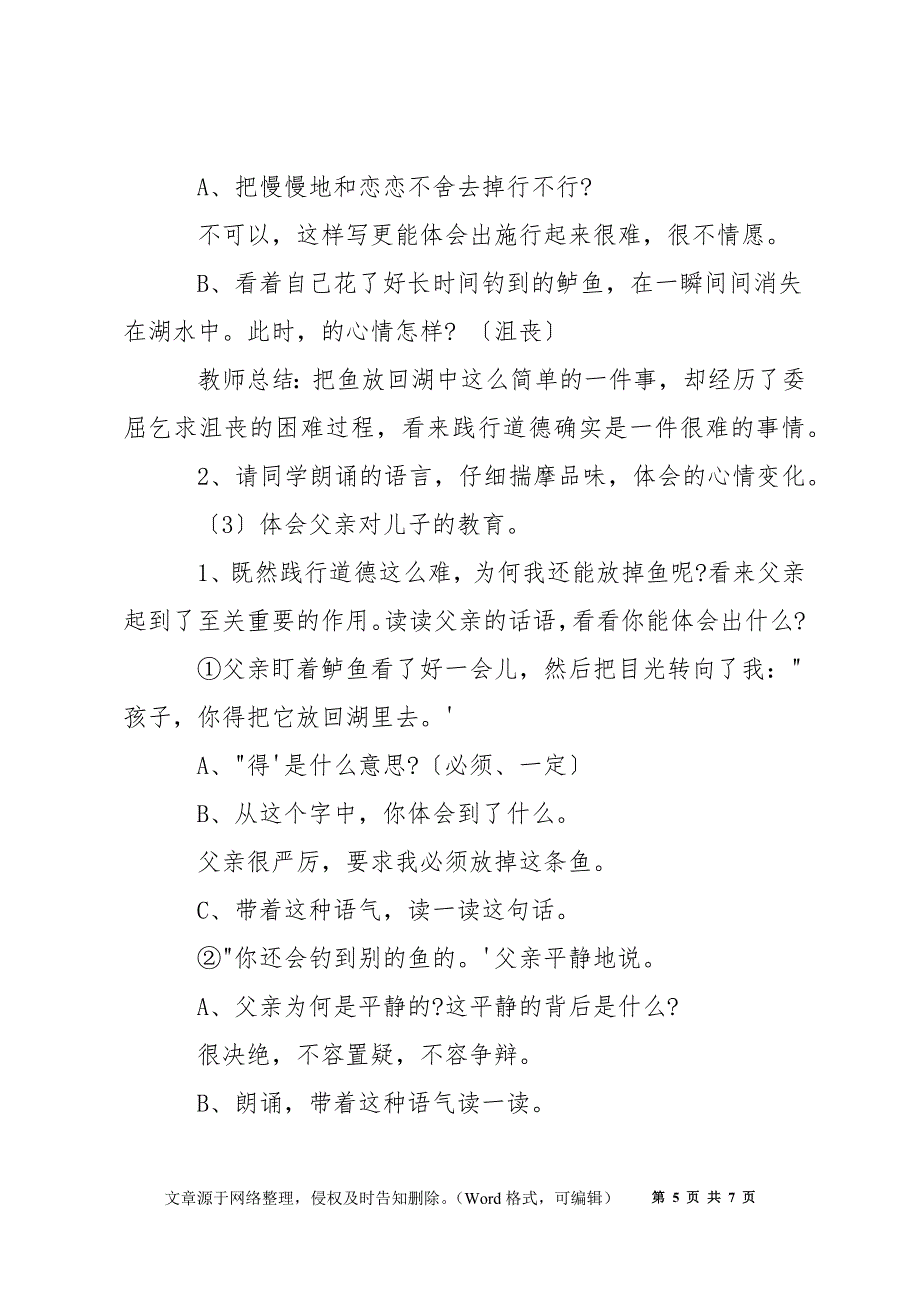 A、把慢慢地和恋恋不舍去掉行不行?
不可以，这样写更能体会出施行起来很难，很不情愿。
B、看着自己花了好长时间钓到的鲈鱼，在一瞬间间消失
在湖水中。此时，的心情怎样? 〔沮丧〕
教师总结：把鱼放回湖中这么简单的一件事，却经历了委
屈乞求沮丧的困难过程，看来践行道德确实是一件很难的事情。
2、请同学朗诵的语言，仔细揣摩品味，体会的心情变化。
〔3〕体会父亲对儿子的教育。
1、既然践行道德这么难，为何我还能放掉鱼呢?看来父亲
起到了至关重要的作用。读读父亲的话语，看看你能体会出什么?
①父亲盯着鲈鱼看了好一会儿，然后把目光转向了我："
孩子，你得把它放回湖里去。'
A、"得'是什么意思?〔必须、一定〕
B、从这个字中，你体会到了什么。
父亲很严厉，要求我必须放掉这条鱼。
C、带着这种语气，读一读这句话。
②"你还会钓到别的鱼的。'父亲平静地说。
A、父亲为何是平静的?这平静的背后是什么?
很决绝，不容置疑，不容争辩。
B、朗诵，带着这种语气读一读。
文章源于网络整理，侵权及时告知删除。（Word 格式，可编辑） 第 5 页 共 7 页